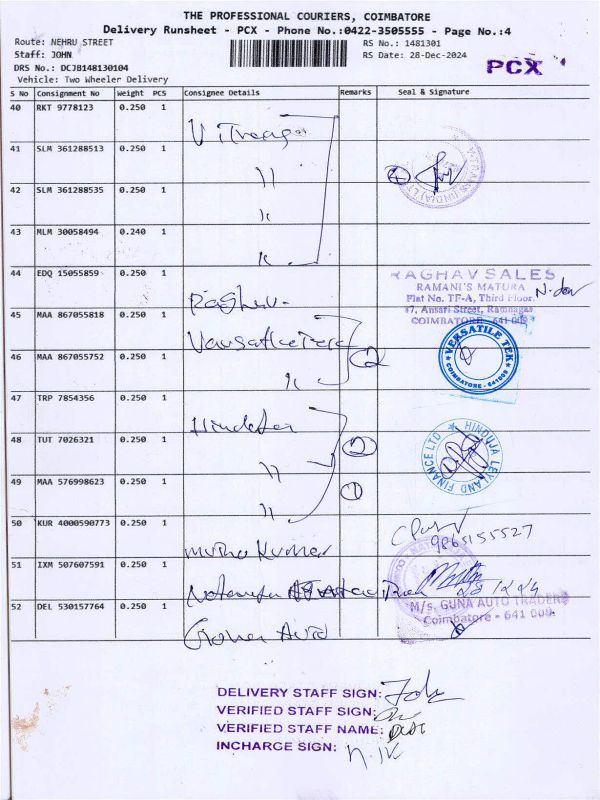 THE PROFESSIONAL COURIERS, COIMBATORE
Delivery Runsheet - PCX - Phone No.:0422-3505555 - Page No.:4
Route: NEHRU STREET
RS No.: 1481301
Staff: JOHN
RS Date: 28-Dec-2024
DRS No.: DCJB148130104
PCX
Vehicle: Two Wheeler Delivery
S No Consignment No Weight PCS Consignee Details Remarks Seal & Signature
40 RKT 9778123 0.250 1
41 SLM 361288513 0.250 1
42 SLM 361288535 0.250 1
43 MLM 30058494 0.240 1
44 EDQ 15055859 0.250 1
RAGHAV SALES
RAMANI'S MATURA
Flat No. TF-A, Third Floor,
87, Ansari Street, Ramnagar
COIMBATORE - 641 009
45 MAA 867055818 0.250 1
VERSATILE TEK
COIMBATORE - 641009
46 MAA 867055752 0.250 1
2
47 TRP 7854356 0.250 1
48 TUT 7026321 0.250 1
2
HINDUJA LEYLAND FINANCE LTD
49 MAA 576998623 0.250 1
1
50 KUR 4000590773 0.250 1
9865155527
Muthu Kumar
51 IXM 507607591 0.250 1
M/s. GUNA AUTO TRADERS
Coimbatore - 641 009.
52 DEL 530157764 0.250 1
DELIVERY STAFF SIGN:
VERIFIED STAFF SIGN:
VERIFIED STAFF NAME:
INCHARGE SIGN: